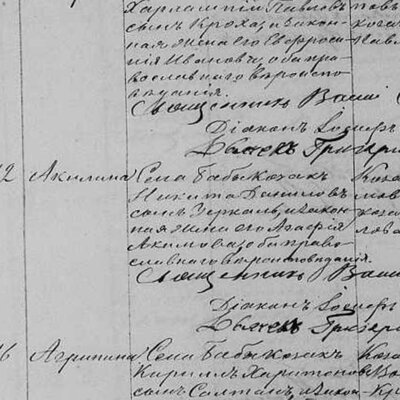 Харлампій Павловъ
сынъ Кроха, и закон-
ная жена его Евфроси-
нія Иванова, оба пра-
вославнаго вѣроиспо-
вѣданія.
Священникъ Васил
Діаконъ Іосифъ
Дьячекъ Григорі
12 Акилина Села Бабы козак
Никита Даниловъ
сынъ Зеркаль, и закон-
ная жена его Агафія
Акимова, оба право-
славнаго вѣроисповѣданія.
Священникъ Васи
Діаконъ Іосифъ
Дьячекъ Григорі
16 Агрипина Села Бабы козакъ
Кириллъ Харитоновъ
сынъ Солтанъ, и закон-